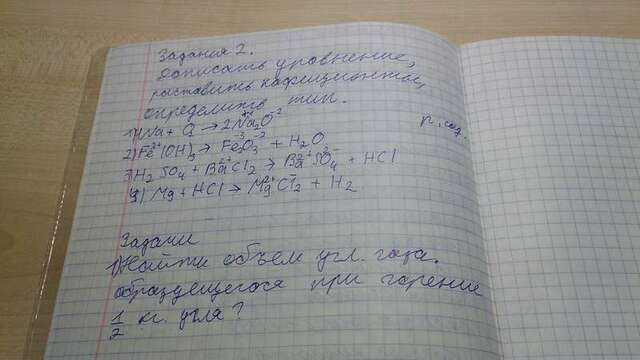 Задания 2.
Дописать уровнение,
раставить кафиционты,
определить тип.
1) 4Na + O₂ → 2Na₂⁺¹O⁻² р. соед.
2) Fe³⁺(OH)₃ → Fe₂⁺³O₃⁻² + H₂O
3) H₂SO₄ + Ba⁺²Cl₂ → Ba²⁺SO₄²⁻ + HCl
4) Mg + HCl → Mg²⁺Cl₂⁻ + H₂
Задачи
1) Найти объем угл. газа.
образующегося при горение
1/2 кг. угля?